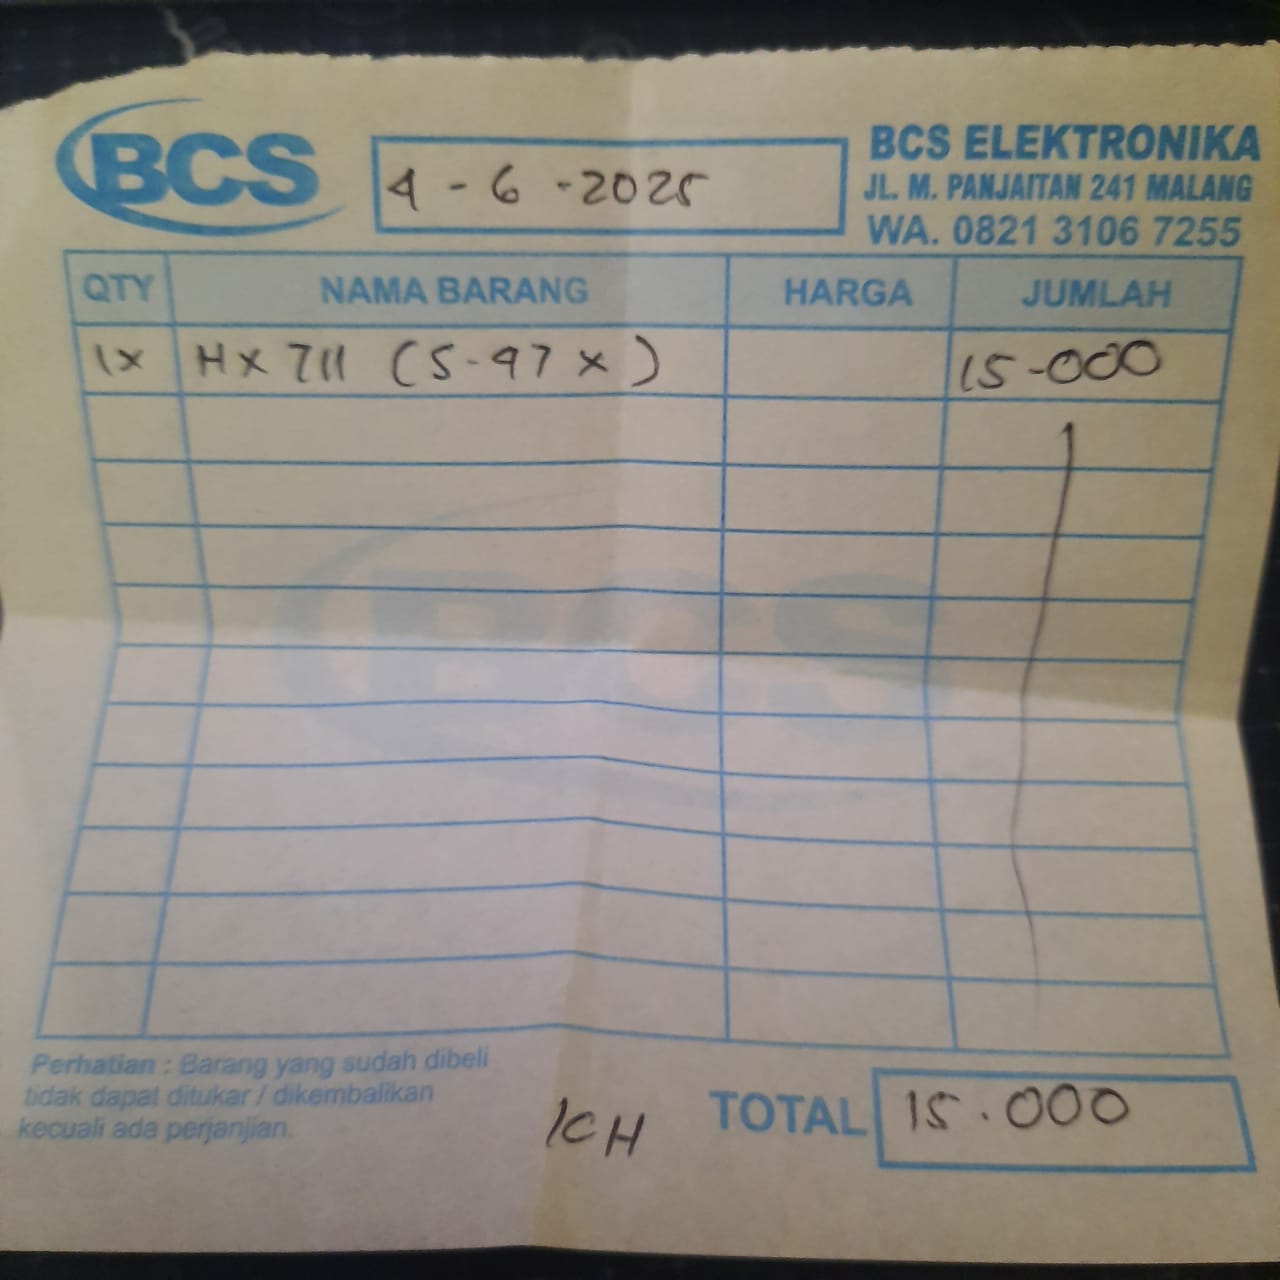 BCS
4 - 6 - 2025
BCS ELEKTRONIKA
JL. M. PANJAITAN 241 MALANG
WA. 0821 3106 7255
QTY NAMA BARANG HARGA JUMLAH
1x HX 711 (S-97x) 15-000
BCS
Perhatian : Barang yang sudah dibeli
tidak dapat ditukar / dikembalikan
kecuali ada perjanjian.
KH
TOTAL 15.000